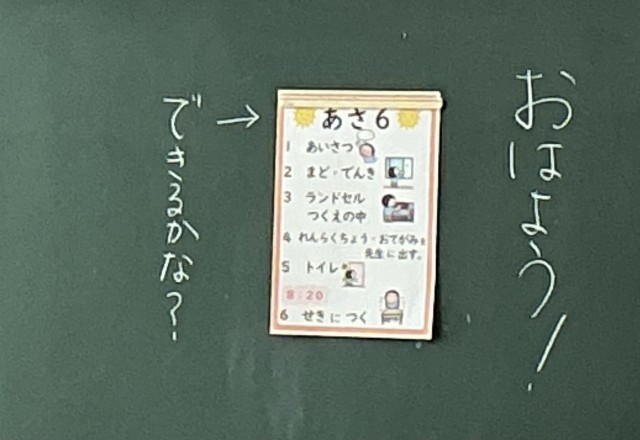 おはよう!
あさ6
1 あいさつ
2 まど・でんき
3 ランドセル
つくえの中
4 れんらくちょう・おてがみを
先生に出す。
5 トイレ
8:20
6 せきにつく
できるかな?
→